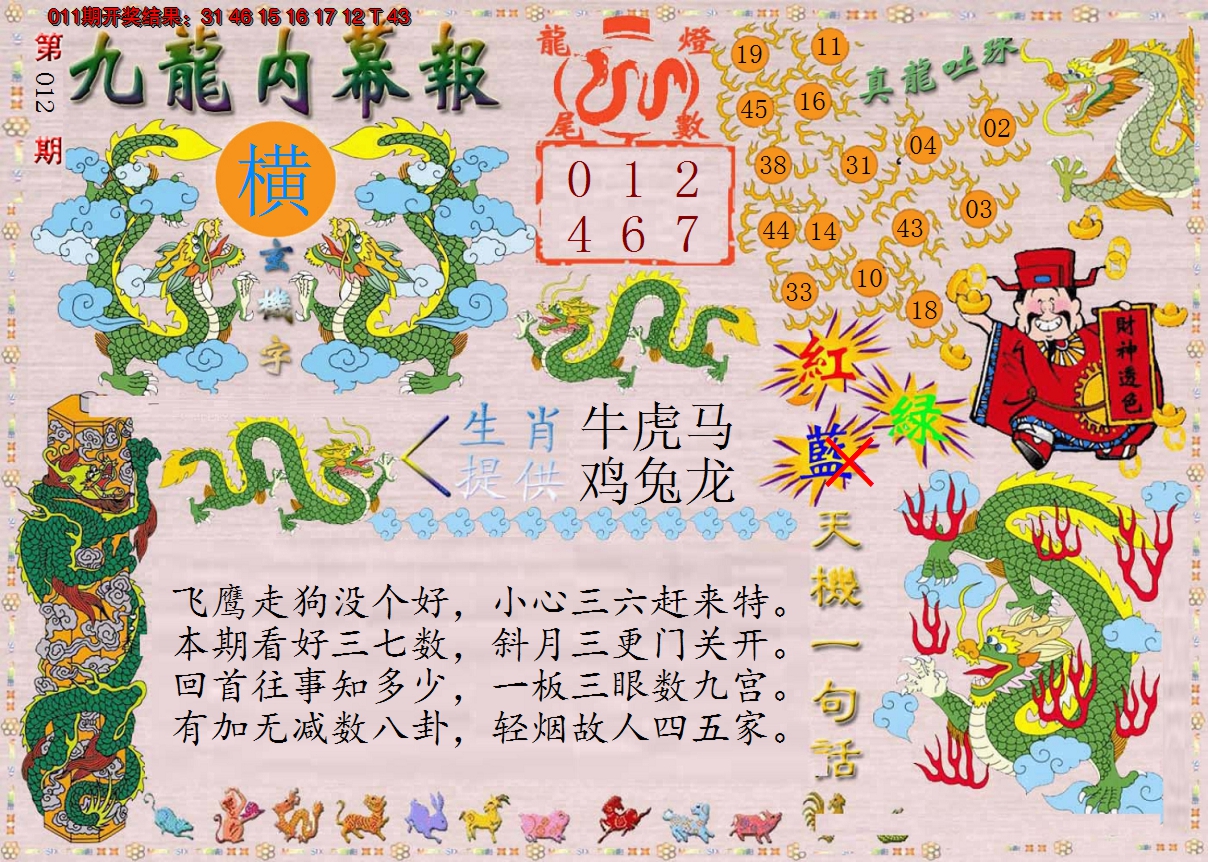 011期开奖结果：31 46 15 16 17 12 T 43
第012期
九龍内幕報
横
玄機字
龍燈
尾數
0 1 2
4 6 7
真龍吐珠
19 11
45 16
04 02
38 31
03
44 14 43
33 10
18
財神透色
紅
綠
藍
生肖 牛虎马
提供 鸡兔龙
天機一句话
飞鹰走狗没个好，小心三六赶来特。
本期看好三七数，斜月三更门关开。
回首往事知多少，一板三眼数九宫。
有加无减数八卦，轻烟故人四五家。